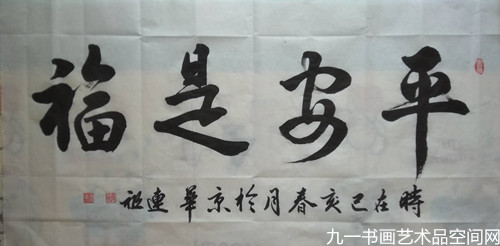 平安是福
時在己亥春月於京華連祖
九一书画艺术品空间网